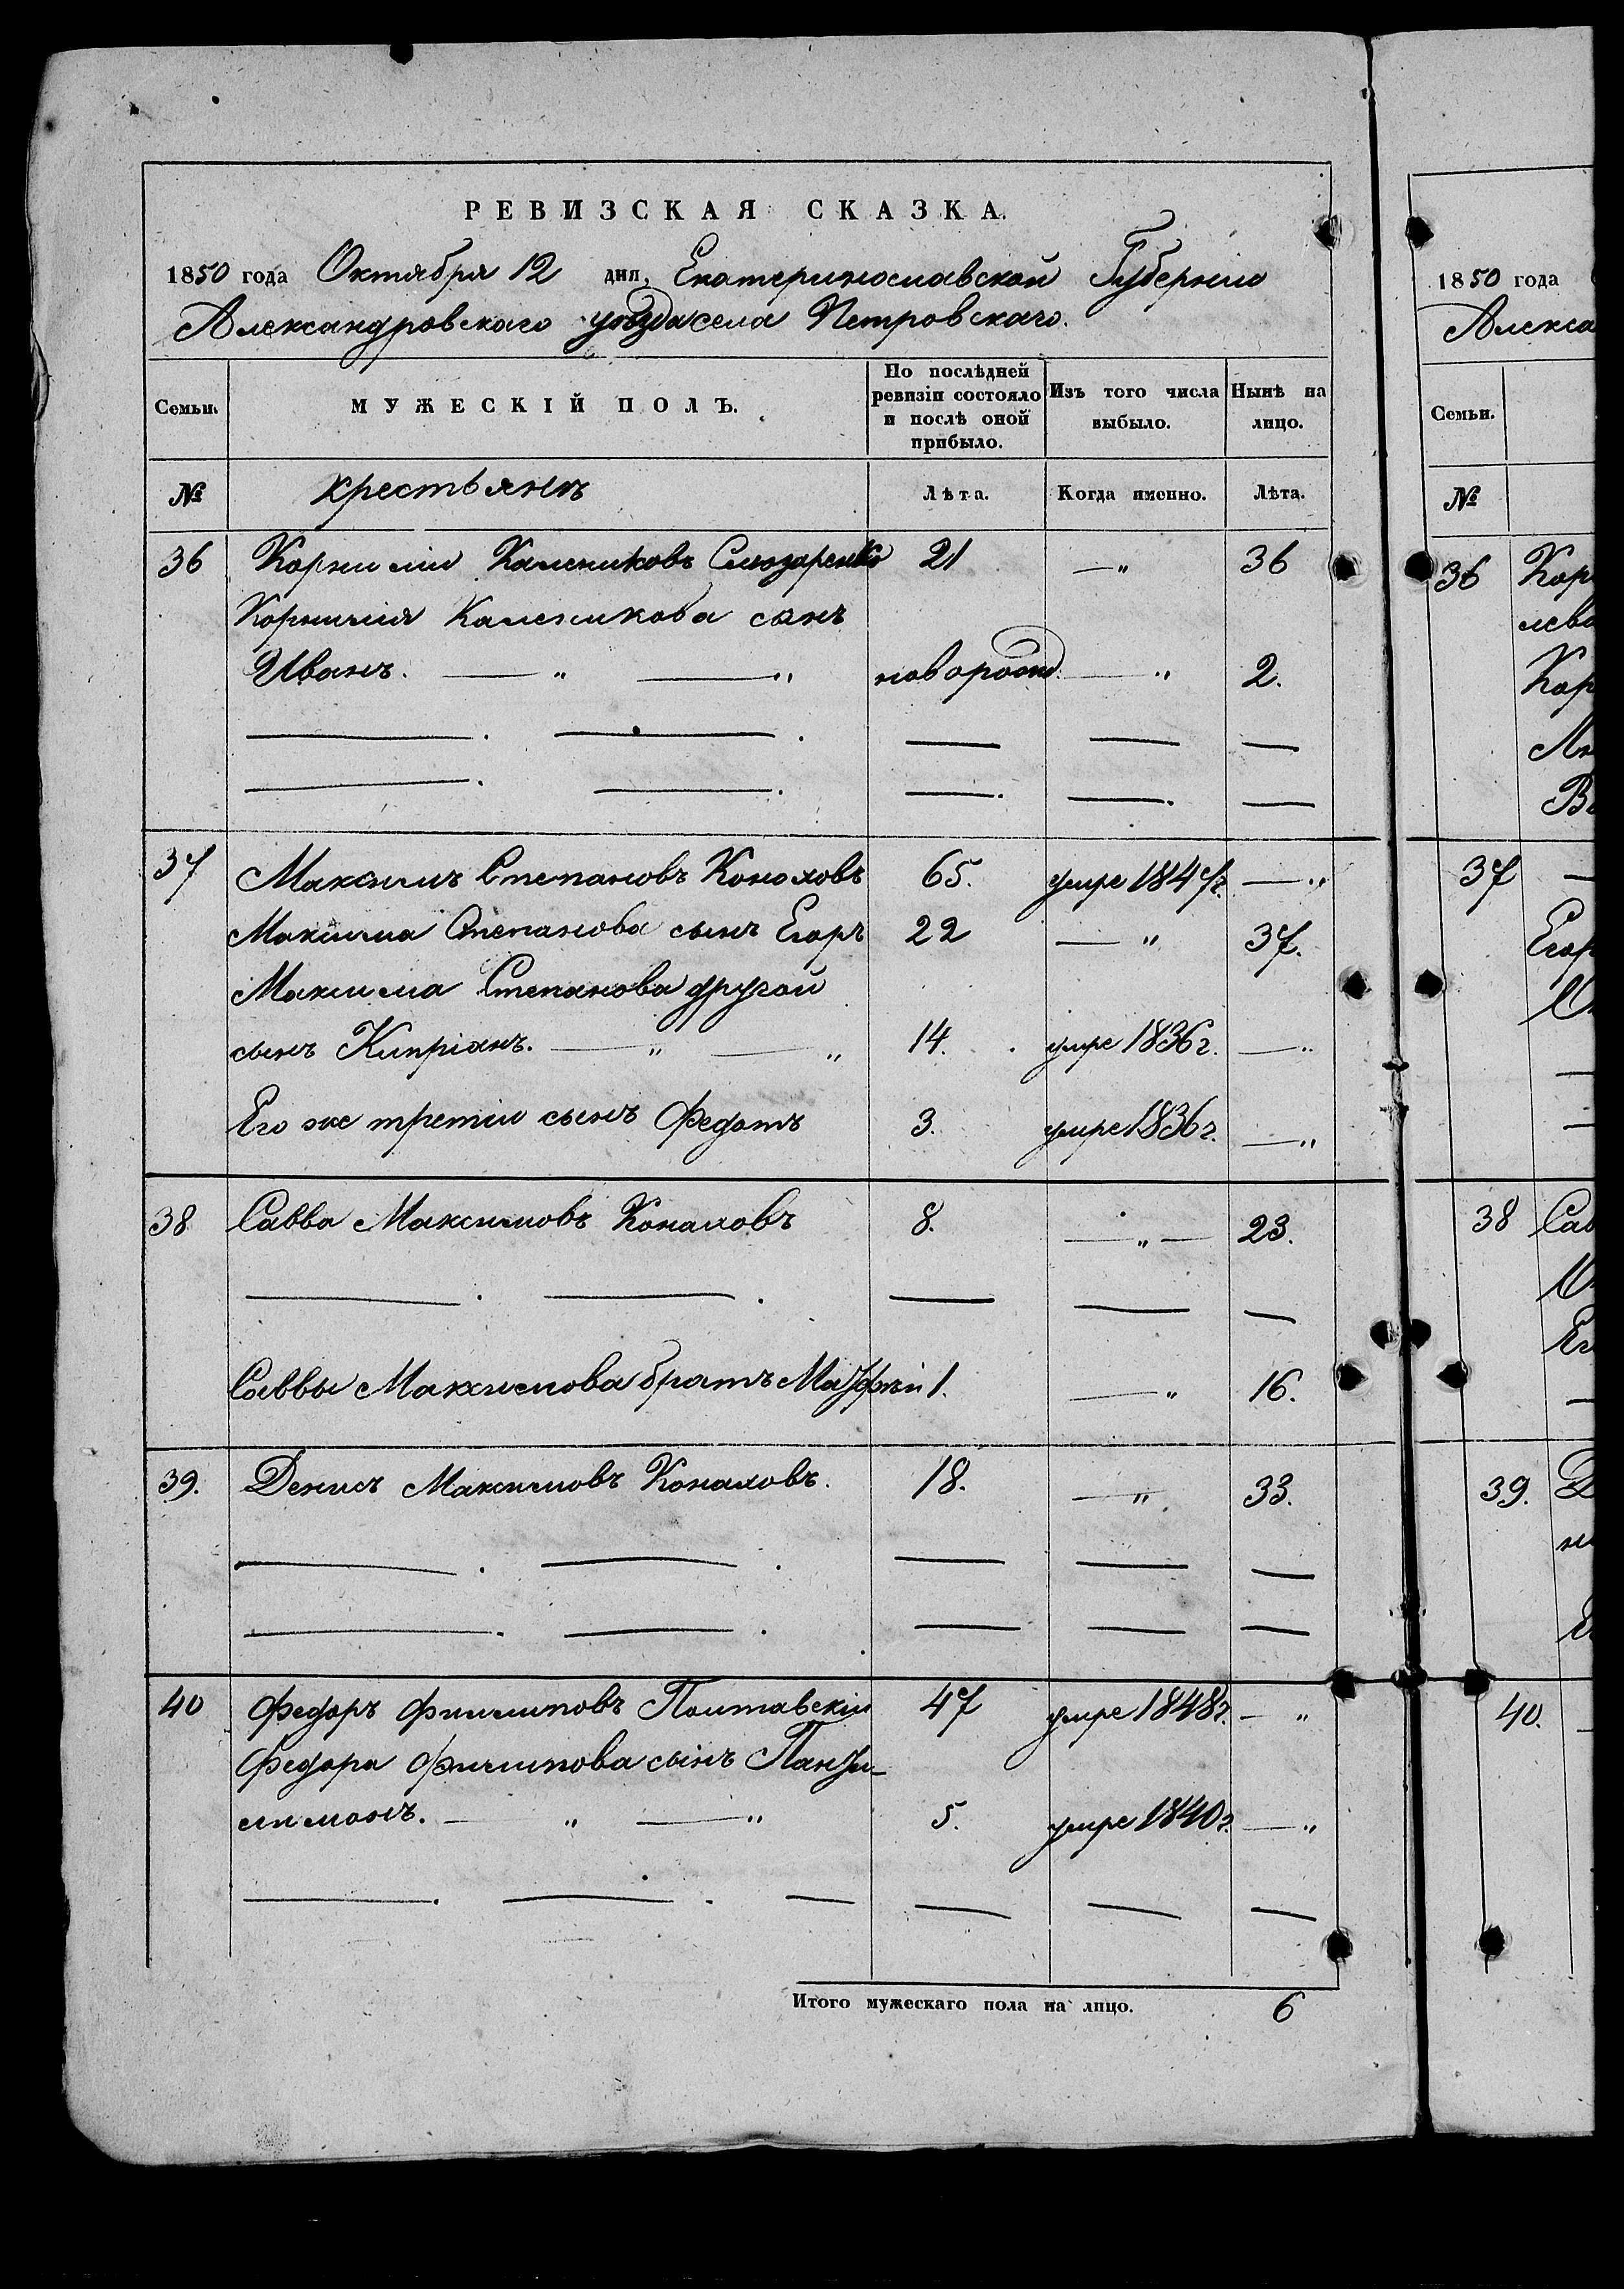 РЕВИЗСКАЯ СКАЗКА.
1850 года Октября 12 дня, Екатеринославской Губерніи
Александровскаго уѣзда села Петровскаго.
Семьи.
МУЖЕСКІЙ ПОЛЪ.
По послѣдней
ревизіи состояло
и послѣ оной
прибыло.
Изъ того числа
выбыло.
Нынѣ на
лицо.
№ крестьянъ Лѣта. Когда именно. Лѣта.
36 Корнилій Калениковъ Слюзаренко 21 — " 36
Корнилія Каленикова сынъ
Иванъ. — " — " новорожд. — " 2.
37 Максимъ Степановъ Коноховъ 65. умре 1847г. — "
Максима Степанова сынъ Егоръ 22 — " 37.
Максима Степанова другой
сынъ Кипріянъ. — " — " 14. умре 1836г. — "
Его же третій сынъ Федотъ 3. умре 1836г. — "
38 Савва Максимовъ Конаховъ 8. — " — 23.
Саввы Максимова братъ 1. — " 16.
39. Денисъ Максимовъ Конаховъ. 18. — " 33.
40 Федоръ Филиповъ Полтавскій 47 умре 1848г. — "
Федора Филипова сынъ Панте-
лимонъ. — " — " 5. умре 1840г. — "
Итого мужескаго пола на лицо. 6
1850 года
Алекса
Семьи.
№
36 Кор
лева
Кор
37
Егор
38 Сав
39. Д
40.